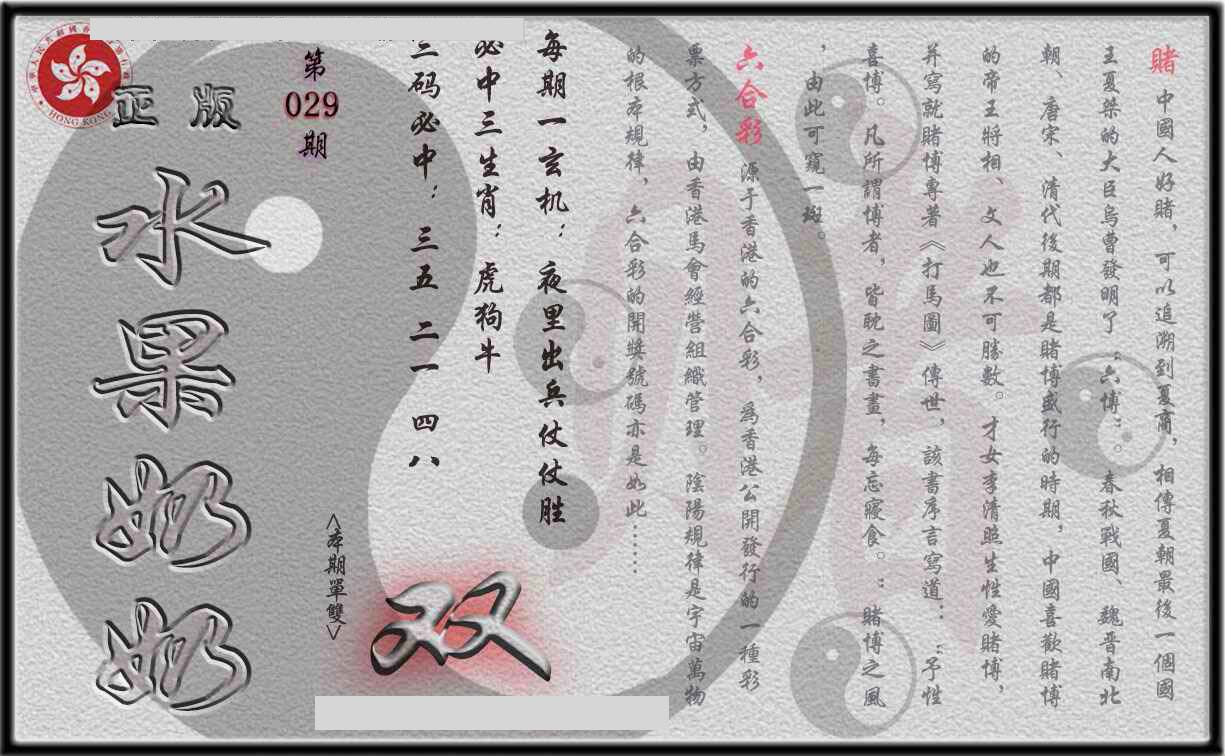 賭 中國人好賭，可以追溯到夏商，相傳夏朝最後一個國
王夏桀的大臣烏曹發明了“六博”。春秋戰國、魏晉南北
朝、唐宋、清代後期都是賭博盛行的時期，中國喜歡賭博
的帝王將相、文人也不可勝數。才女李清照生性愛賭博，
并寫就賭博專著《打馬圖》傳世，該書序言寫道：“予性
喜博。凡所謂博者，皆耽之晝畫，每忘寢食。”賭博之風
，由此可窺一斑。
六合彩 源于香港的六合彩，為香港公開發行的一種彩
票方式，由香港馬會經營組織管理。陰陽規律是宇宙萬物
的根本規律，六合彩的開獎號碼亦是如此……
每期一玄机：夜里出兵仗仗胜
必中三生肖：虎狗牛
三码必中：三五 二一 四八
第
029
期
<本期單雙>
双
正版
水果奶奶
HONG KONG